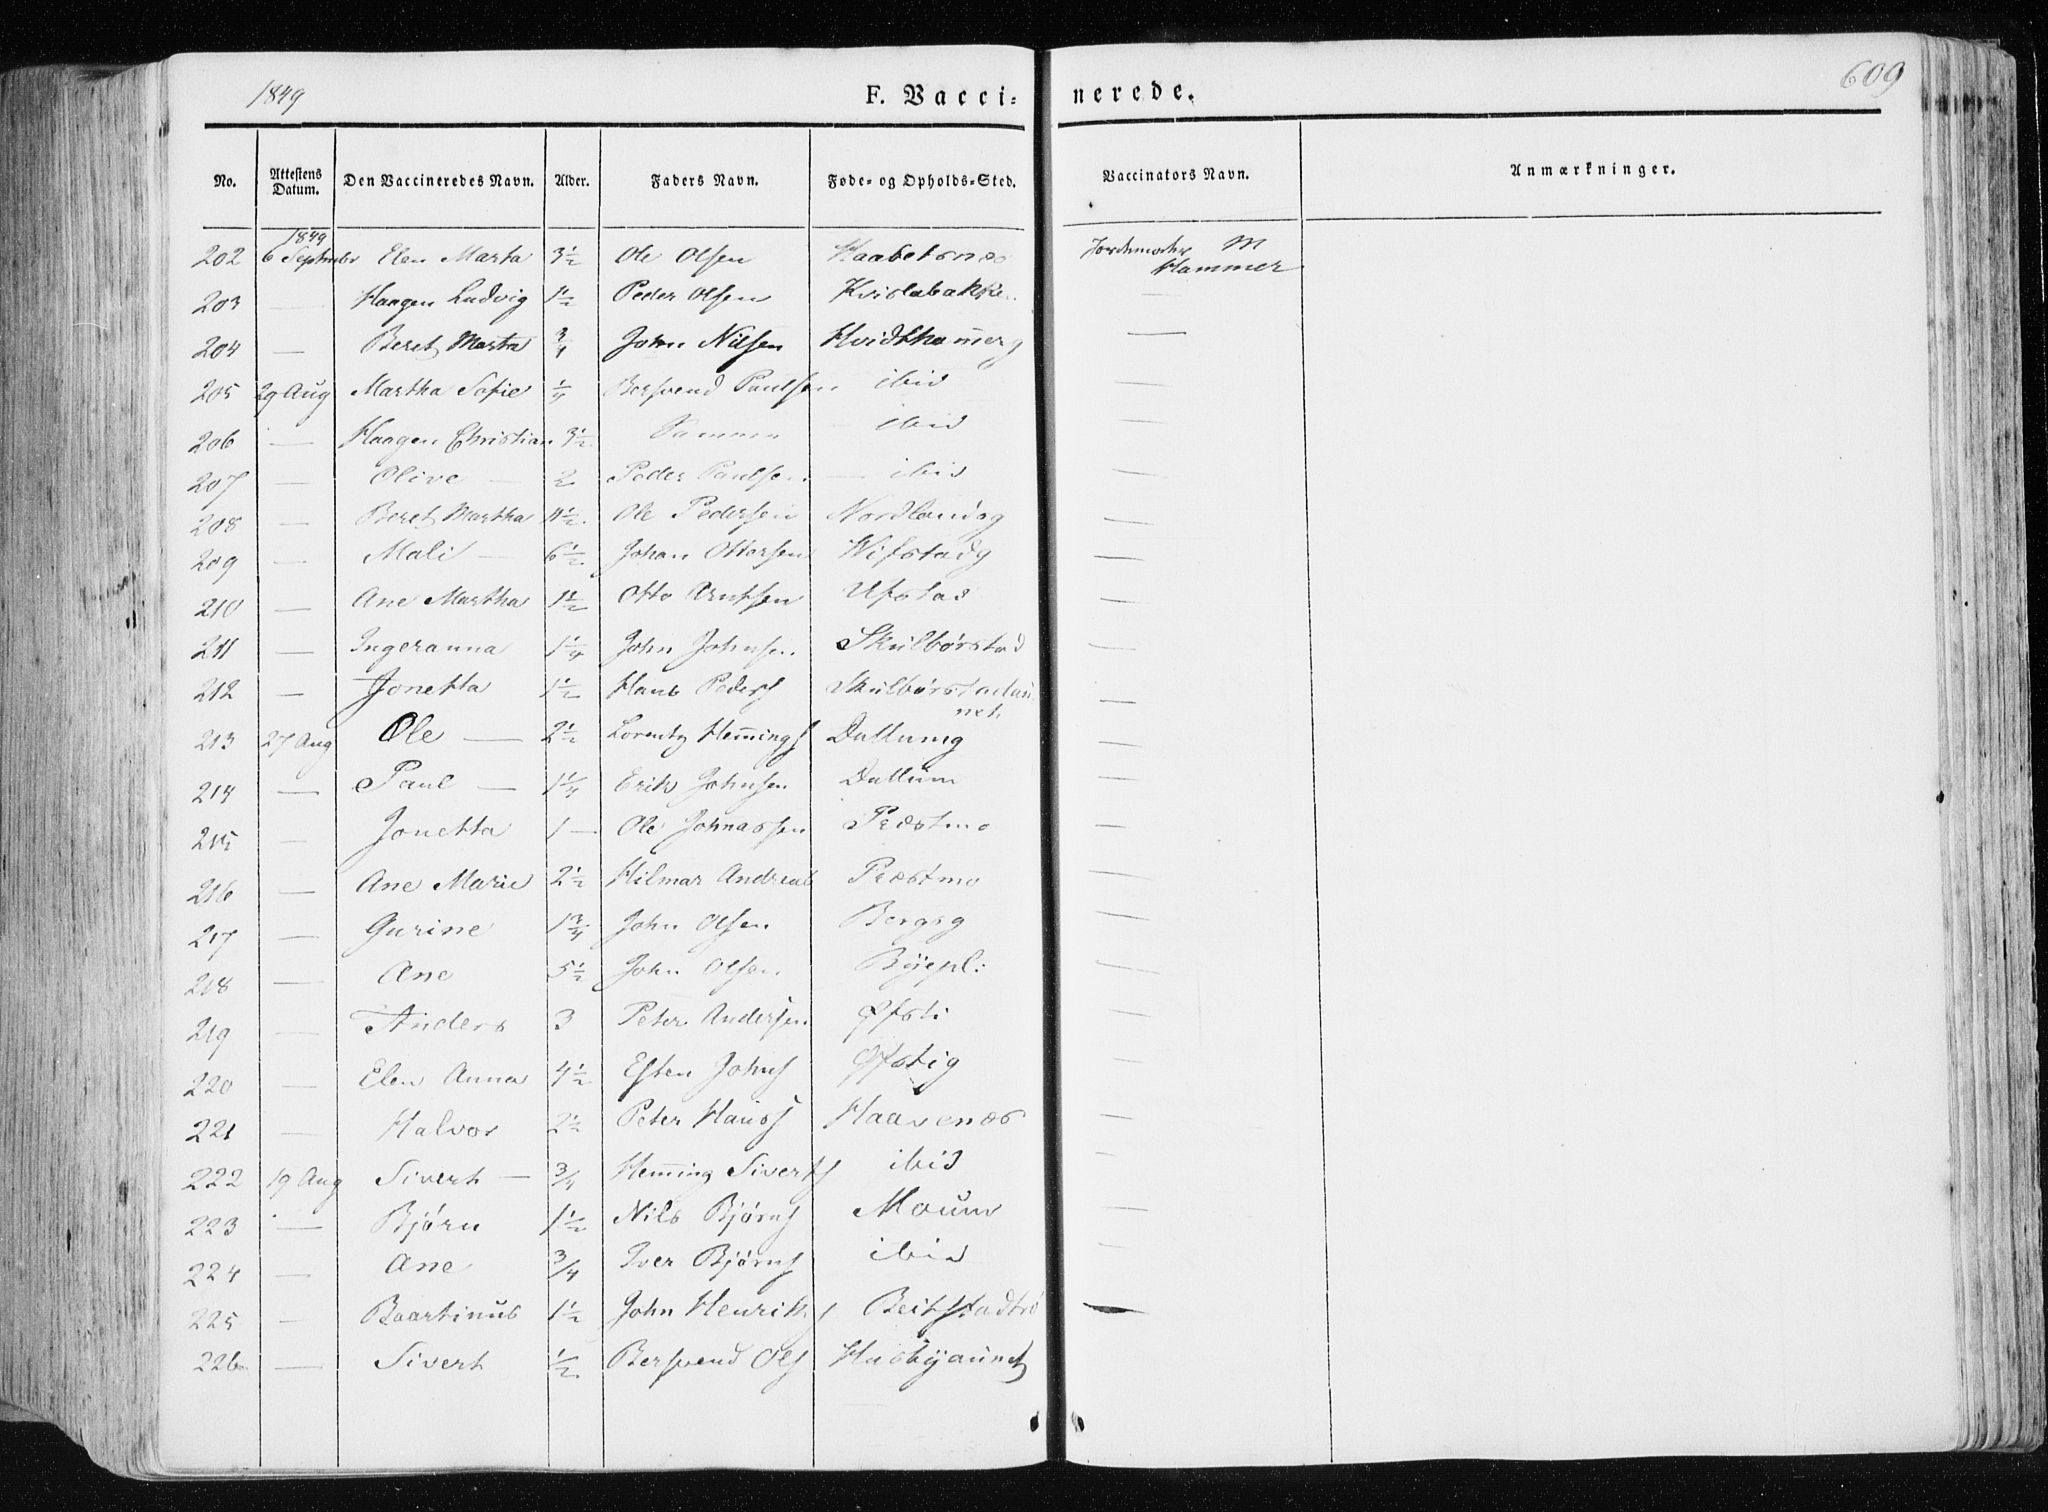 1849 F. Vacci- nerede. 609
No. Attestens Datum. Den Vaccineredes Navn. Alder. Faders Navn. Føde- og Opholds-Sted. Vaccinators Navn. Anmærkninger.
1849
202 6 September Elen Marta 3½ Ole Olsen Haabetsnæs Jordemoder M
Hammer
203 — Haagen Ludvig 1½ Peder Olsen Kvislabakke —
204 — Beret Marta ¾ John Nilsen Hvidthamerg —
205 29 Aug Martha Sofie ¼ Bersvend Paulsen ibid —
206 — Haagen Christian 3½ Samme ibid —
207 — Olive — 2 Peder Paulsen — ibid —
208 — Beret Martha 4½ Ole Pedersen Nordlandsg —
209 — Mali — 6½ Johan Ottersen Vifstadg —
210 — Ane Martha 1½ Otto Arntsen Ufstad —
211 — Ingeranna 1¼ John Johnsen Skulbørstad —
212 — Jonetta 1½ Hans Peders Skulbørstadau
net. —
213 27 Aug Ole — 2½ Lorentz Hemings Dullumg —
214 — Paul — 1¼ Erik Johnsen Dullum —
215 — Jonetta 1 — Ole Johnassen Præstmo —
216 — Ane Marie 2½ Hilmar Andreas Præstmo —
217 — Gurine 1¾ John Olsen Bergsg —
218 — Ane 5½ John Olsen Byepl: —
219 — Anders 3 Peter Andersen Øfsti —
220 — Elen Anna 4½ Esten Johns Øfstig —
221 — Halvor 2½ Peter Hans Haavenæs —
222 19 Aug Sivert — ¾ Heming Siverts ibid —
223 — Bjørn 1½ Nils Bjørns Moum —
224 — Ane ¾ Iver Bjørns ibid —
225 — Baartinus 1½ John Henriks Beitstadtrø —
226 — Sivert ½ Bersvend Ols Husbyaunet